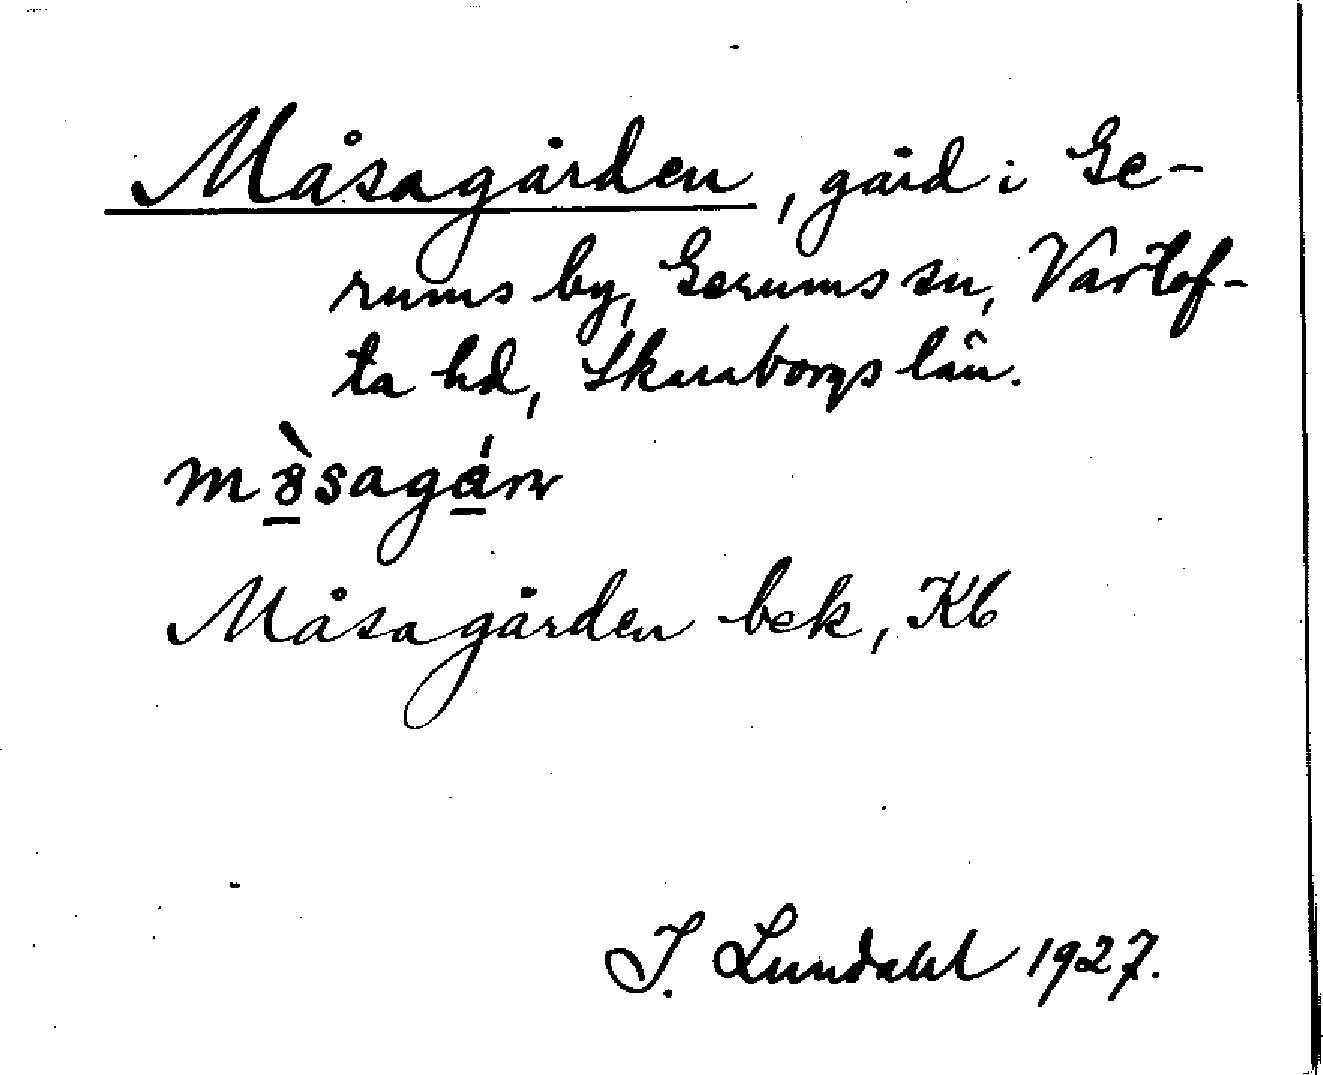 Måsagården, gård i Ge-
rums by, Gerums sn, Vartof-
ta hd, Skaraborgs län.
Måsagården bek, Kb
I. Lundahl 1927.